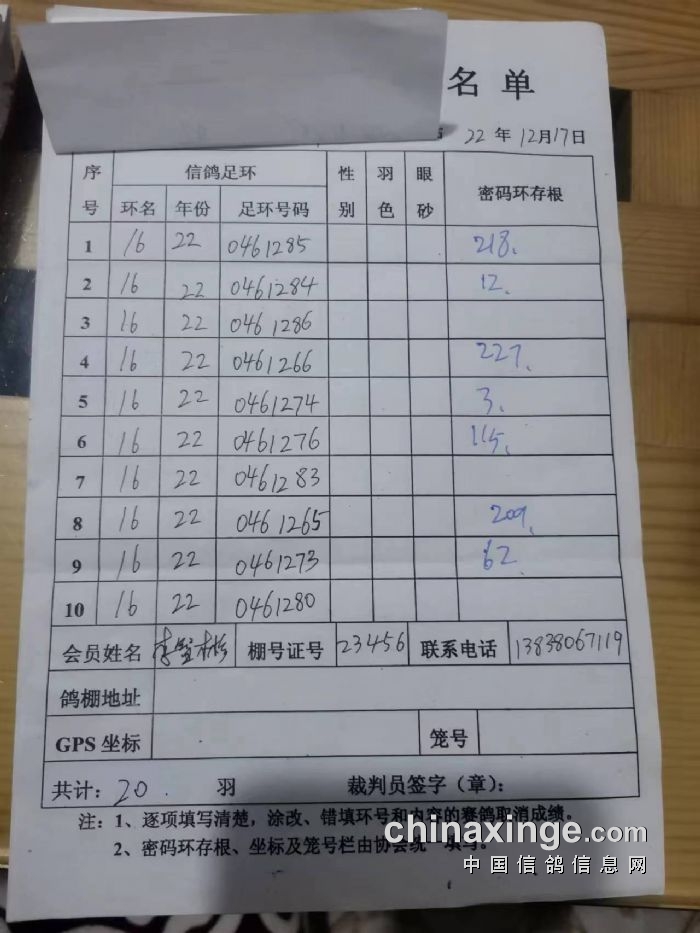 名 单
22 年 12月17日
序号 信鸽足环 性别 羽色 眼砂 密码环存根
环名 年份 足环号码
1 16 22 0461285 218.
2 16 22 0461284 12.
3 16 22 0461286
4 16 22 0461266 227.
5 16 22 0461274 3.
6 16 22 0461276 115.
7 16 22 0461283
8 16 22 0461265 209.
9 16 22 0461273 62.
10 16 22 0461280
会员姓名 李 棚号证号 23456 联系电话 13838067119
鸽棚地址
GPS 坐标 笼号
共计: 20. 羽 裁判员签字（章）:
注: 1、逐项填写清楚，涂改、错填环号和内容的赛鸽取消成绩。
2、密码环存根、坐标及笼号栏由协会统一填写。
chinaxinge.com
中国信鸽信息网